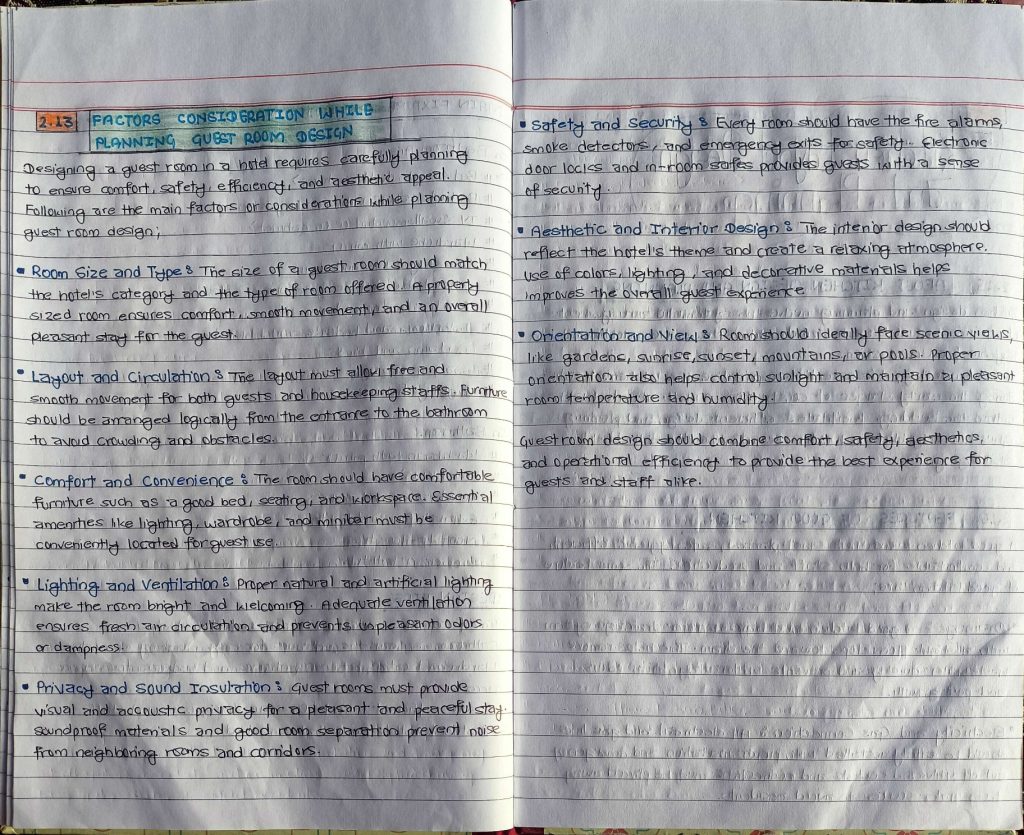 2.13 FACTORS CONSIDERATION WHILE
PLANNING GUEST ROOM DESIGN
Designing a guest room in a hotel requires carefully planning
to ensure comfort, safety, efficiency, and aesthetic appeal.
Following are the main factors or considerations while planning
guest room design;
• Room Size and Type : The size of a guest room should match
the hotel's category and the type of room offered. A properly
sized room ensures comfort, smooth movement, and an overall
pleasant stay for the guest.
• Layout and Circulation : The layout must allow free and
smooth movement for both guests and housekeeping staffs. Furniture
should be arranged logically from the entrance to the bathroom
to avoid crowding and obstacles.
• Comfort and Convenience : The room should have comfortable
furniture such as a good bed, seating, and workspace. Essential
amenities like lighting, wardrobe, and minibar must be
conveniently located for guest use.
• Lighting and Ventilation : Proper natural and artificial lighting
make the room bright and welcoming. Adequate ventilation
ensures fresh air circulation and prevents unpleasant odors
or dampness.
• Privacy and Sound Insulation : Guest rooms must provide
visual and accoustic privacy for a pleasant and peaceful stay.
Soundproof materials and good room separation prevent noise
from neighboring rooms and corridors.
• Safety and Security : Every room should have the fire alarms,
smoke detectors, and emergency exits for safety. Electronic
door locks and in-room safes provides guests with a sense
of security.
• Aesthetic and Interior Design : The interior design should
reflect the hotel's theme and create a relaxing atmosphere.
Use of colors, lighting, and decorative materials helps
improves the overall guest experience
• Orientation and View : Room should ideally face scenic views,
like gardens, sunrise, sunset, mountains, or pools. Proper
orientation also helps control sunlight and maintain a pleasant
room temperature and humidity.
Guest room design should combine comfort, safety, aesthetics,
and operational efficiency to provide the best experience for
guests and staff alike.